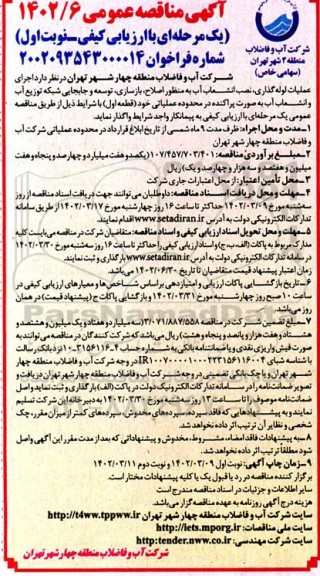 آگهی مناقصه عمومی ۱۴۰۲/۶
(یک مرحله‌ای با ارزیابی کیفی_نوبت اول)
شماره فراخوان ۲۰۰۲۰۹۳۵۴۳۰۰۰۰۱۴
شرکت آب و فاضلاب
منطقه ۴ شهر تهران
(سهامی خاص)
شرکت آب و فاضلاب منطقه چهار شهر تهران در نظر دارد اجرای
عملیات لوله گذاری، نصب انشعاب آب به منظور اصلاح، بازسازی، توسعه و جابجایی شبکه توزیع آب
و انشعاب آب به صورت پراکنده در محدوده عملیاتی خود (قطعه اول) با شرایط ذیل از طریق مناقصه
عمومی یک مرحله‌ای با ارزیابی کیفی به پیمانکار واجد شرایط واگذار نماید.
۱-مدت و محل اجراء: ظرف مدت ۹ ماه شمسی از تاریخ ابلاغ قرارداد در محدوده عملیاتی شرکت آب
و فاضلاب منطقه چهار شهر تهران
۲-مبلغ برآوردی مناقصه: ۱۰۷/۴۵۷/۷۰۳/۴۰۱ (یکصد و هفت میلیارد و چهارصد و پنجاه و هفت
میلیون و هفتصد و سه هزار و چهارصد و یک) ریال
۳-محل تأمین اعتبار: از محل اعتبارات جاری شرکت
۴-مهلت و محل دریافت اسناد مناقصه: داوطلبان می‌توانند جهت دریافت اسناد مناقصه از روز
سه‌شنبه مورخ ۱۴۰۲/۰۳/۰۹ حداکثر تا ساعت ۱۶ روز چهارشنبه مورخ ۱۴۰۲/۰۳/۱۷ از طریق سامانه
تدارکات الکترونیکی دولت به آدرس www.setadiran.ir اقدام نمایند.
۵-مهلت و محل تحویل اسناد ارزیابی کیفی و اسناد مناقصه: متقاضیان شرکت در مناقصه می‌بایست کلیه
مدارک مربوط به پاکات (الف،ب،ج) و اسناد ارزیابی کیفی را حداکثر تا ساعت ۱۶ روز سه‌شنبه مورخ ۱۴۰۲/۰۳/۳۰
در سامانه تدارکات الکترونیکی دولت به آدرس www.setadiran.ir بارگذاری و ثبت نمایند.
زمان اعتبار پیشنهاد قیمت متقاضیان تا تاریخ ۱۴۰۲/۰۶/۳۰ می‌باشد.
۶-تاریخ بازگشایی پاکات ارزیابی و امتیازدهی براساس شاخص‌ها و معیارهای ارزیابی کیفی در
ساعت ۱۰ صبح روز چهارشنبه مورخ ۱۴۰۲/۰۳/۳۱ و بازگشایی پاکات ج (پیشنهاد قیمت) در همان
روز می‌باشد.
۷-مبلغ تضمین شرکت در مناقصه ۳/۰۷۱/۸۸۷/۵۵۸ (سه میلیارد و هفتاد و یک میلیون و هشتصد و
هشتاد و هفت هزار و پانصد و پنجاه و هشت) ریال می‌باشد که شرکت کنندگان در مناقصه می‌توانند به
صورت فیش واریزی نقدی و یا ضمانتنامه بانکی به شماره حساب
تصویر ضمانت‌نامه را در سامانه تدارکات الکترونیک دولت در پاکت (الف) بارگذاری و ثبت نماید و اصل
ضمانت‌نامه موصوف را تا ساعت ۱۲ روز سه‌شنبه مورخ ۱۴۰۲/۰۳/۳۰ به دبیرخانه این شرکت تسلیم
نمایند و به پیشنهادهایی که فاقد سپرده، سپرده‌های مخدوش، سپرده‌های کمتر از میزان مقرر، چک
شخصی و نظایر آن ترتیب اثر داده نخواهد شد.
۸-به پیشنهادات فاقد امضاء، مشروط، مخدوش و پیشنهاداتی که بعد از مدت مقرر این آگهی واصل
شود مطلقا ترتیب اثر داده نخواهد شد.
۹-زمان چاپ آگهی: نوبت اول ۱۴۰۲/۰۳/۰۹ و نوبت دوم ۱۴۰۲/۰۳/۱۱
برگزار کننده مناقصه در رد یا قبول یک یا کلیه پیشنهادات مختار است.
سایر اطلاعات و جزئیات در اسناد مناقصه مندرج است
هزینه درج آگهی روزنامه به عهده مناقصه‌گزار می‌باشد.
سایت شرکت آب و فاضلاب منطقه چهار شهر تهران http://t4ww.tppww.ir
سایت ملی مناقصات: http://iets.mporg.ir
سایت شرکت مهندسی: http:tender.nww.co.ir
شرکت آب و فاضلاب منطقه چهار شهر تهران